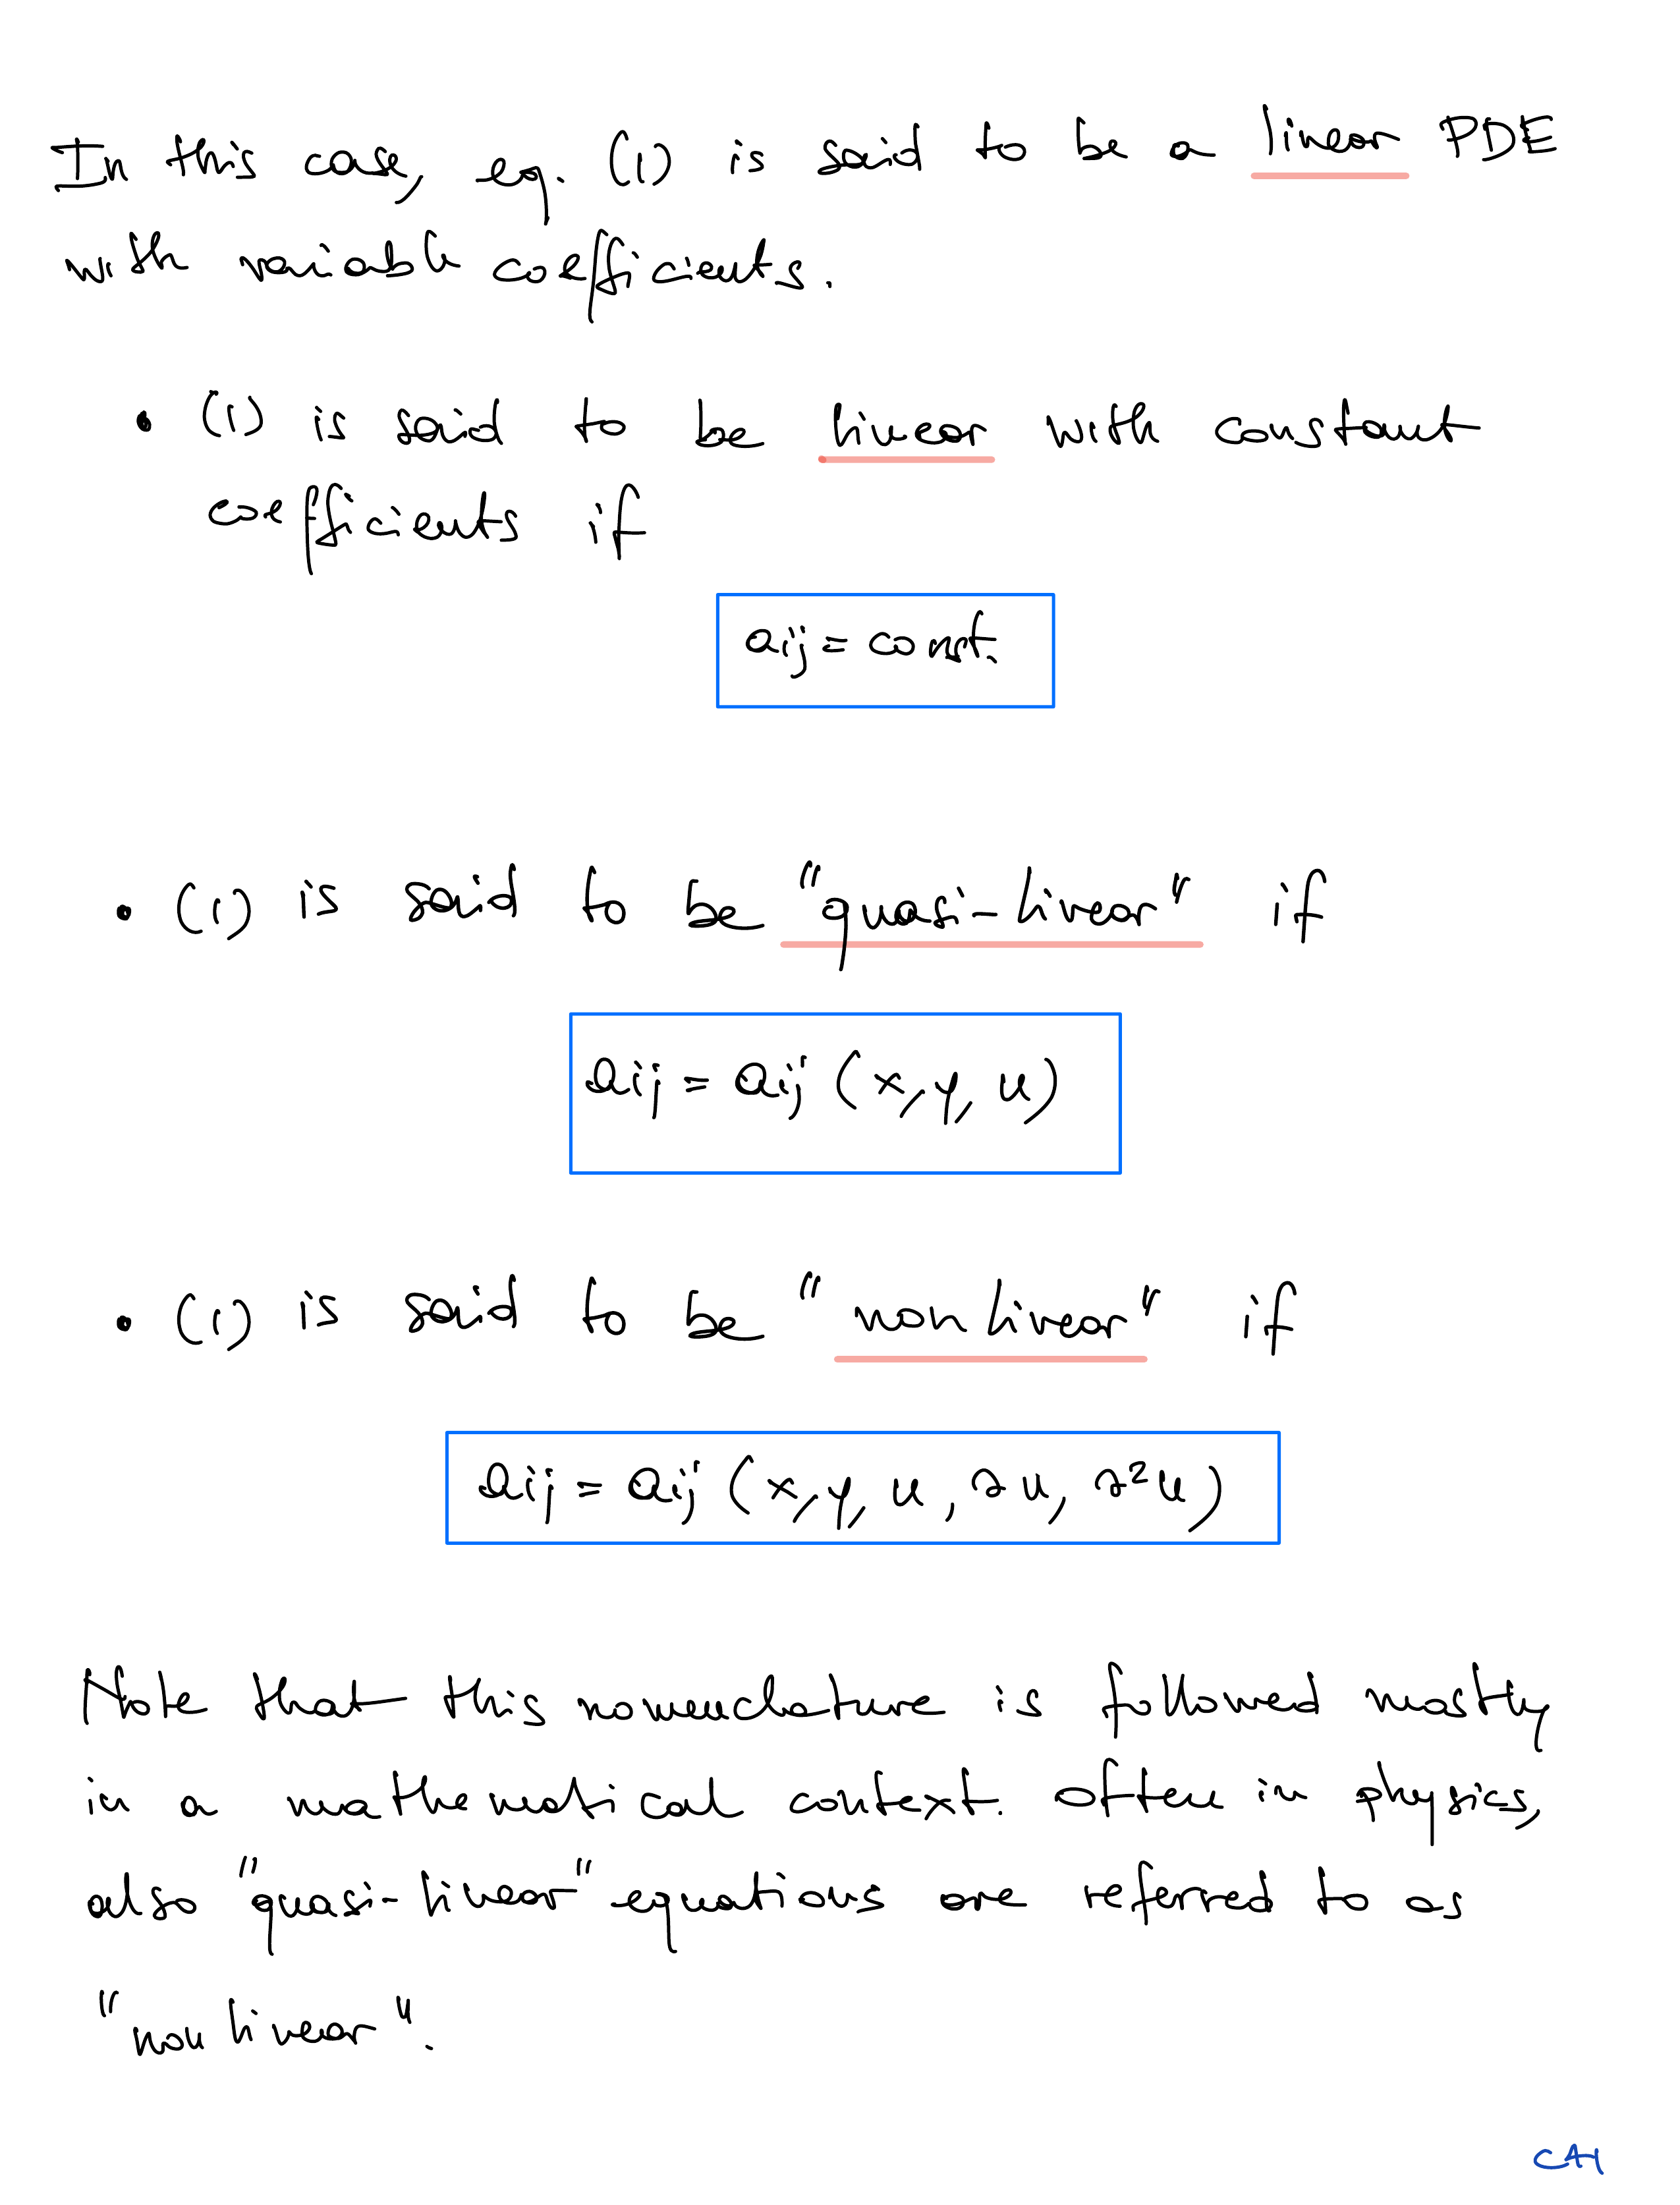 In this case, eq. (1) is said to be a linear PDE
with variable coefficients.
• (1) is said to be linear with constant
coefficients if
aij = const.
• (1) is said to be "quasi-linear" if
aij = aij (x, y, u)
• (1) is said to be "nonlinear" if
aij = aij (x, y, u, ∂u, ∂²u)
Note that this nomenclature is followed mostly
in a mathematical context. Often in physics,
also "quasi-linear" equations are referred to as
"nonlinear".